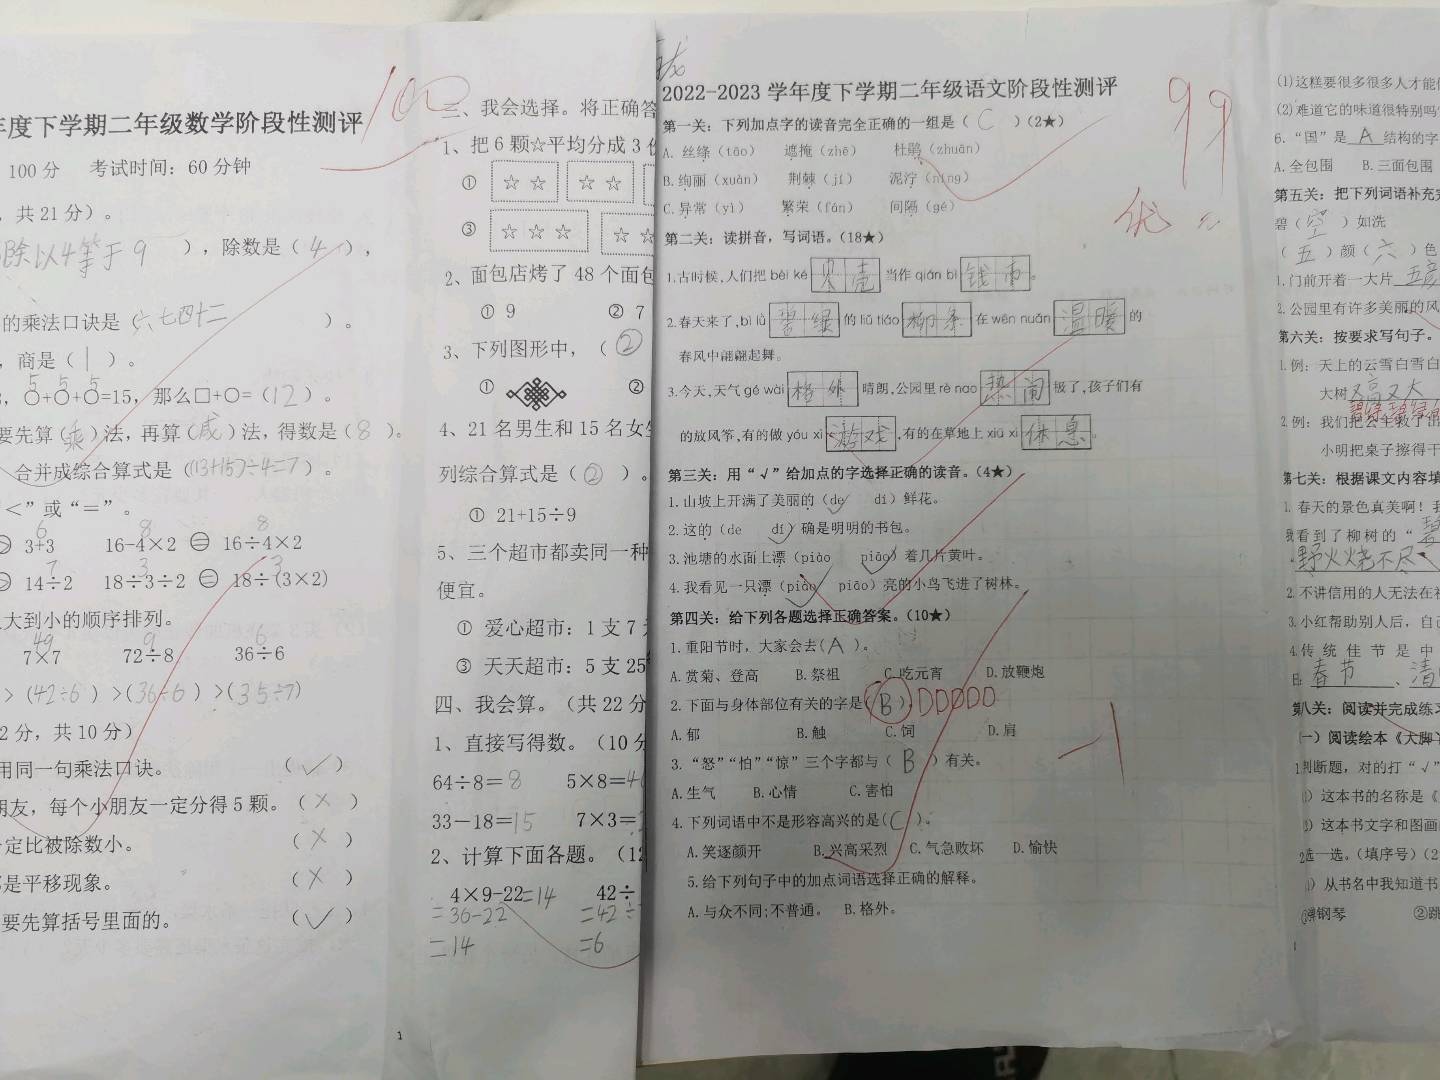 年度下学期二年级数学阶段性测评
100
100分 考试时间：60分钟
，共21分）。
除以4等于9 ），除数是（ 4 ），
的乘法口诀是（六七四十二 ）。
，商是（ 1 ）。
5 5 5
，○+○+○=15，那么□+○=（12）。
要先算（乘）法，再算（减）法，得数是（8）。
合并成综合算式是（(13+15)÷4=7）。
“＜”或“＝”。
6 8 8
3+3 16-4×2 ＝ 16÷4×2
7 3 3
14÷2 18÷3÷2 ＝ 18÷(3×2)
大到小的顺序排列。
49 9 6
7×7 72÷8 36÷6
＞（42÷6）＞（36÷6）＞（35÷7）
2分，共10分）
用同一句乘法口诀。 （✓）
朋友，每个小朋友一定分得5颗。（×）
定比被除数小。 （×）
是平移现象。 （×）
要先算括号里面的。 （✓）
1
三、我会选择。将正确答
1、把6颗☆平均分成3份
① ☆☆ ☆☆
③ ☆☆☆ ☆☆
2、面包店烤了48个面包
① 9 ② 7
3、下列图形中，（②
① ②
4、21名男生和15名女生
列综合算式是（②）。
① 21+15÷9
5、三个超市都卖同一种
便宜。
① 爱心超市：1支7元
③ 天天超市：5支25
四、我会算。（共22分
1、直接写得数。（10分
64÷8=8 5×8=40
33－18=15 7×3=
2、计算下面各题。（12
4×9-22=14 42÷
=36-22 =42÷
=14 =6
2022-2023学年度下学期二年级语文阶段性测评
99
优
第一关：下列加点字的读音完全正确的一组是（ C ）(2★)
A. 丝绦（tāo） 遮掩（zhē） 杜鹃（zhuān）
B.绚丽（xuàn） 荆棘（jí） 泥泞（níng）
C.异常（yì） 繁荣（fán） 间隔（gé）
第二关：读拼音，写词语。(18★)
1.古时候,人们把 bèi ké 贝壳 当作 qián bì 钱币。
2.春天来了,bì lǜ 碧绿 的 liǔ tiáo 柳条 在 wēn nuǎn 温暖 的
春风中翩翩起舞。
3.今天,天气 gé wài 格外 晴朗,公园里 rè nao 热闹 极了,孩子们有
的放风筝,有的做 yóu xì 游戏,有的在草地上 xiū xi 休息。
第三关：用“√”给加点的字选择正确的读音。(4★)
1.山坡上开满了美丽的（de✓ dí）鲜花。
2.这的（de dí✓）确是明明的书包。
3.池塘的水面上漂（piào piāo✓）着几片黄叶。
4.我看见一只漂（piào✓ piāo）亮的小鸟飞进了树林。
第四关：给下列各题选择正确答案。(10★)
1.重阳节时，大家会去（A）。
A.赏菊、登高 B.祭祖 C.吃元宵 D.放鞭炮
2.下面与身体部位有关的字是（B）。DDDDD
A.郁 B.触 C.饲 D.肩
-1
3.“怒”“怕”“惊”三个字都与（ B ）有关。
A.生气 B.心情 C.害怕
4.下列词语中不是形容高兴的是（C）。
A.笑逐颜开 B.兴高采烈 C.气急败坏 D.愉快
5.给下列句子中的加点词语选择正确的解释。
A.与众不同;不普通。 B.格外。
(1)这样要很多很多人才能
(2)难道它的味道很特别吗
6.“国”是 A 结构的字
A.全包围 B.三面包围
第五关：把下列词语补充完
碧（空）如洗
（五）颜（六）色
1.门前开着一大片 五
2.公园里有许多美丽的风
第六关：按要求写句子。
1.例：天上的云雪白雪白
大树又高又大
2.例：我们把公主救了出
小明把桌子擦得干
第七关：根据课文内容填
1.春天的景色真美啊！我
我看到了柳树的“碧
野火烧不尽
2.不讲信用的人无法在社
3.小红帮助别人后，自己
4.传统佳节是中
日：春节、清
第八关：阅读并完成练习
(一)阅读绘本《大脚丫
1.判断题，对的打“√”
(1)这本书的名称是《
(2)这本书文字和图画
2.选一选。(填序号)(2
(1)从书名中我知道书
①弹钢琴 ②跳
1